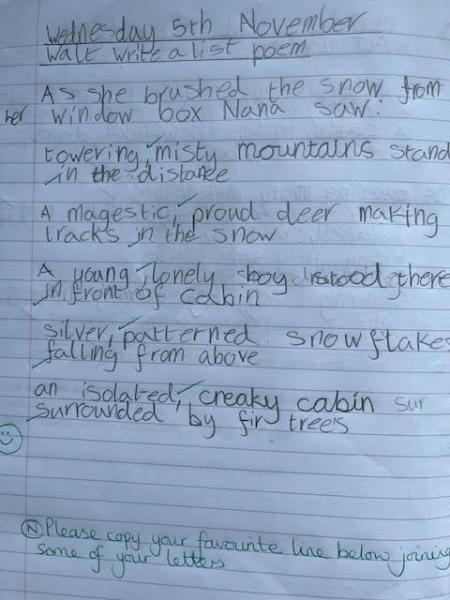 Wednesday 5th November
Walt write a list poem
As she brushed the snow from
her window box Nana saw:
towering, misty mountains stand
in the distance
A magestic, proud deer making
tracks in the snow
A young, lonely boy stood there
in front of cabin
silver, patterned snowflakes
falling from above
an isolated, creaky cabin sur
surrounded by fir trees
N Please copy your favourite line below joining
some of your letters